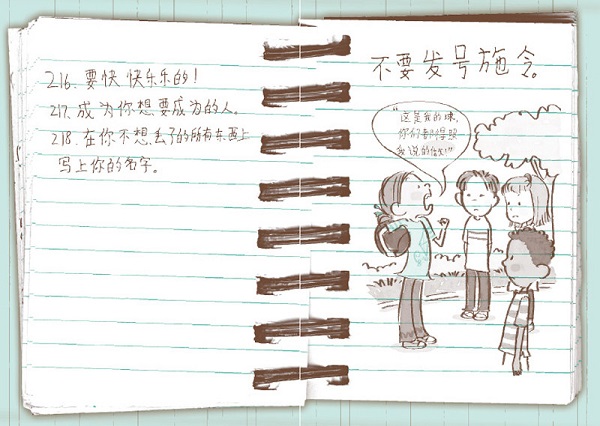 216. 要快快乐乐的!
217. 成为你想要成为的人。
218. 在你不想丢了的所有东西上
写上你的名字。
不要发号施令。
“这是我的球,
你们都得照
我说的做!”